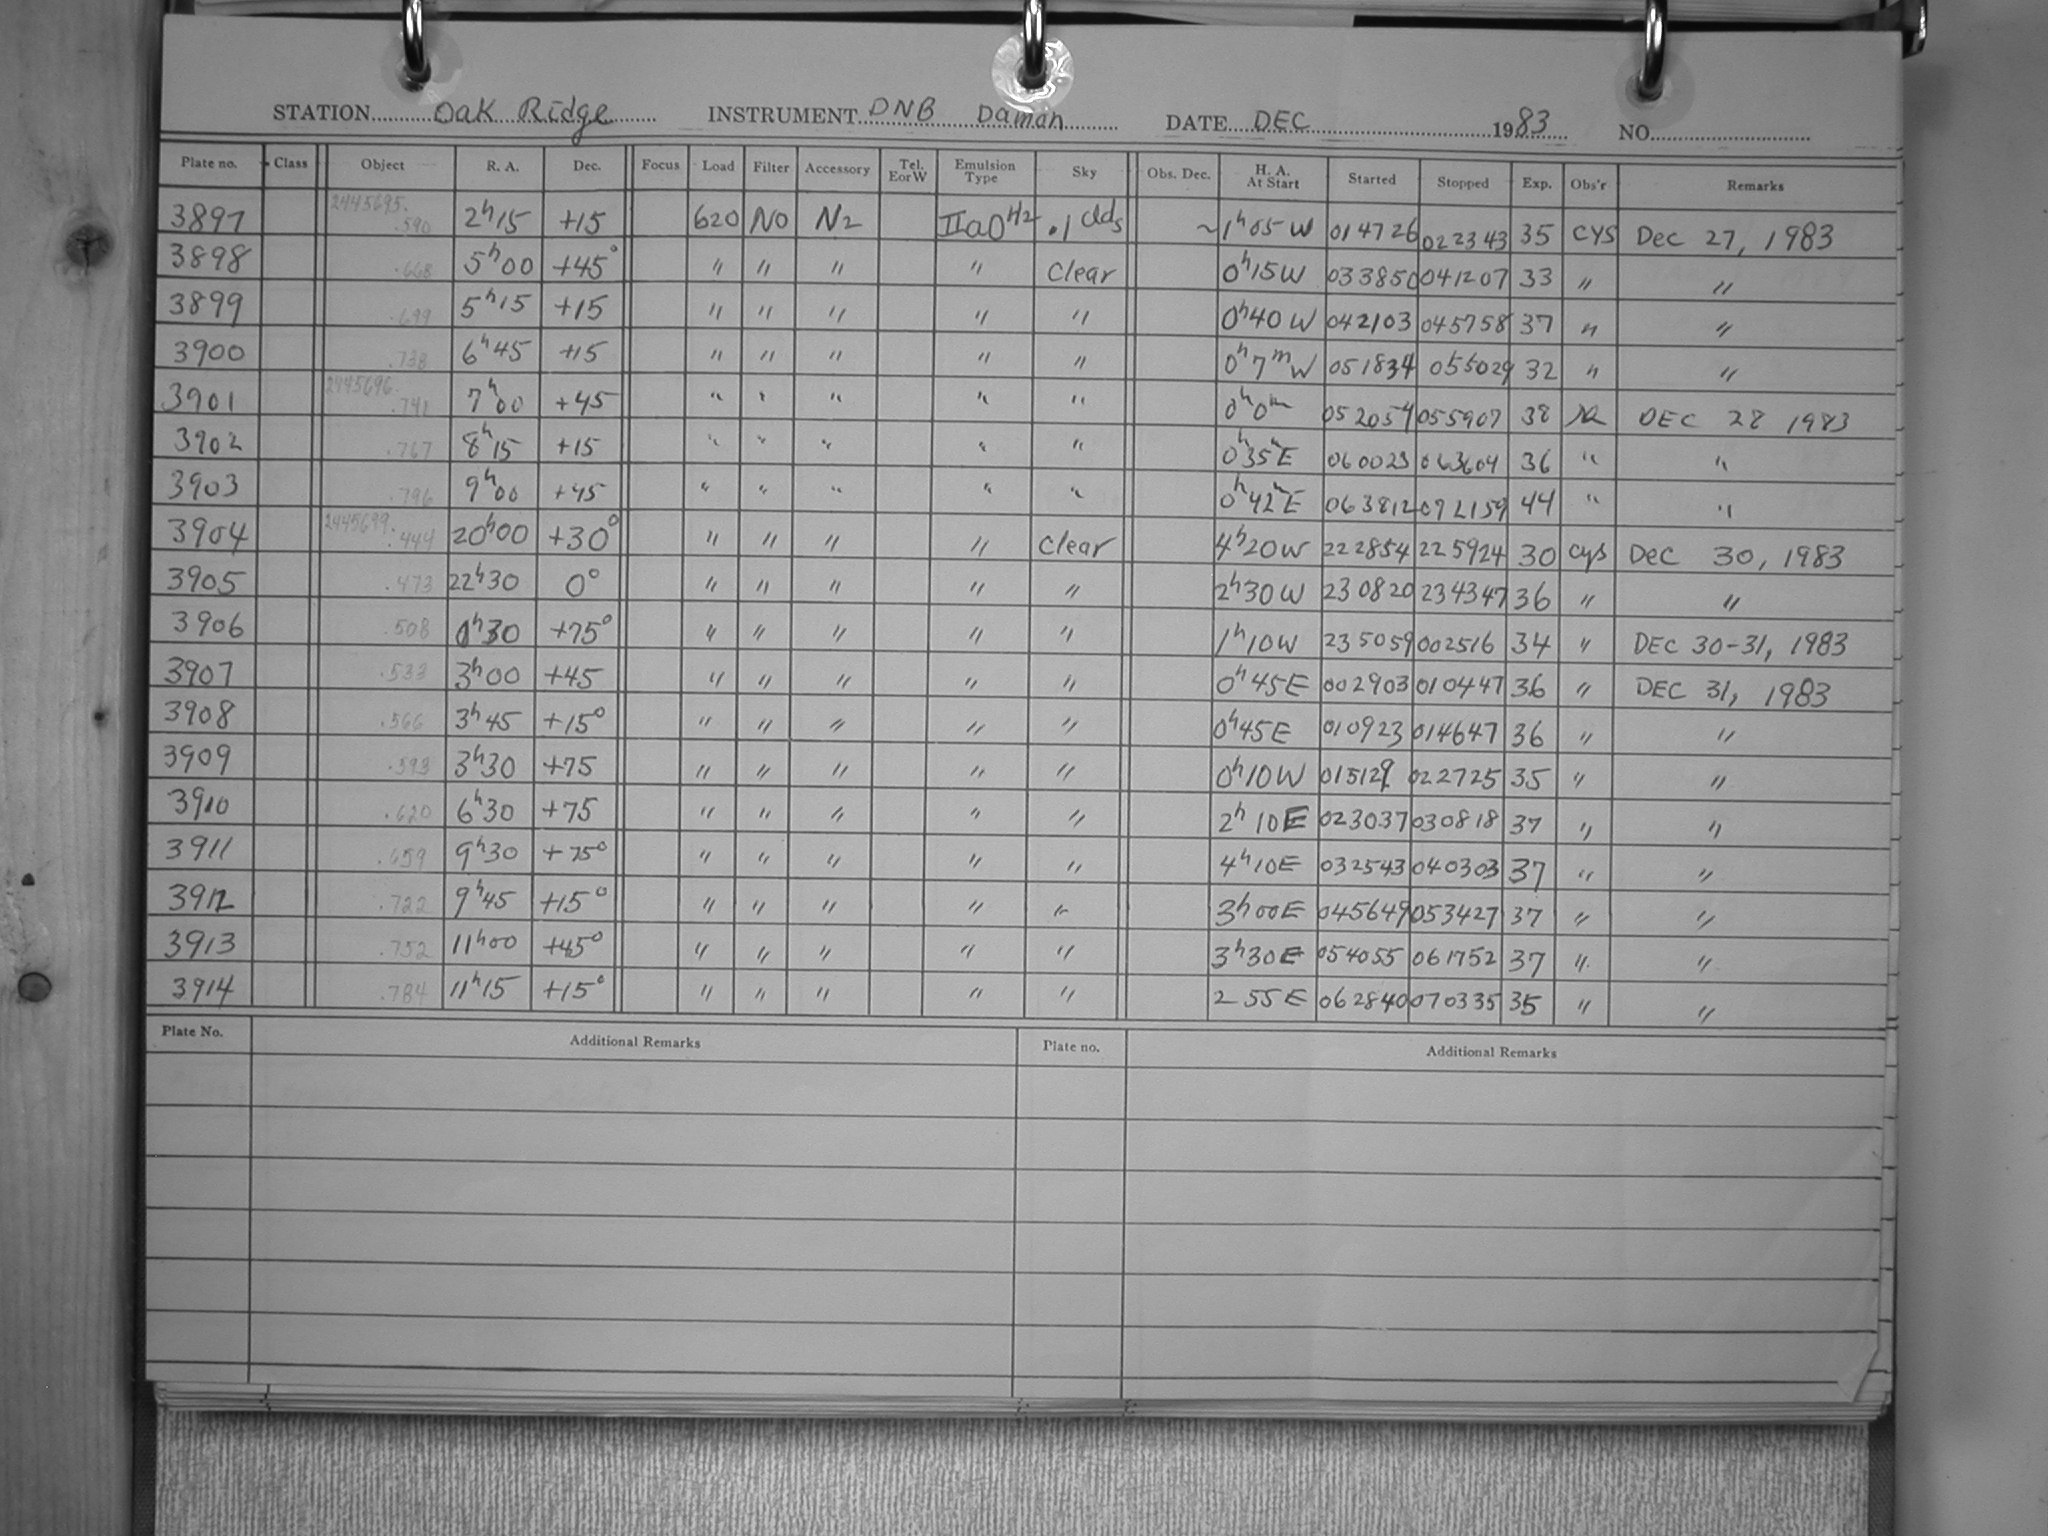 STATION Oak Ridge INSTRUMENT DNB Daman DATE DEC 1983 NO.
Plate no. Class Object R. A. Dec. Focus Load Filter Accessory Tel. E or W Emulsion Type Sky Obs. Dec. H. A. At Start Started Stopped Exp. Obs'r Remarks
3897 2445695.590 2h15 +15 620 NO N2 IIaOH2 .1 clds ~1h05 W 014726 022343 35 CYS Dec 27, 1983
3898 .668 5h00 +45° " " " " Clear 0h15W 033850 041207 33 " "
3899 .699 5h15 +15 " " " " " 0h40 W 042103 045758 37 " "
3900 .738 6h45 +15 " " " " " 0h7m W 051834 055029 32 " "
3901 2445696.741 7h00 +45 " " " " " 0h0m 052054 055907 38 DEC 28 1983
3902 .767 8h15 +15 " " " " " 0h35mE 060023 063604 36 " "
3903 .796 9h00 +45 " " " " " 0h42mE 063812 072159 44 " "
3904 2445699.444 20h00 +30° " " " " Clear 4h20W 222854 225924 30 cys Dec 30, 1983
3905 .473 22h30 0° " " " " " 2h30W 230820 234347 36 " "
3906 .508 0h30 +75° " " " " " 1h10W 235059 002516 34 " DEC 30-31, 1983
3907 .533 3h00 +45 " " " " " 0h45E 002903 010447 36 " DEC 31, 1983
3908 .566 3h45 +15° " " " " " 0h45E 010923 014647 36 " "
3909 .593 3h30 +75 " " " " " 0h10W 015129 022725 35 " "
3910 .620 6h30 +75 " " " " " 2h10E 023037 030818 37 " "
3911 .659 9h30 +75° " " " " " 4h10E 032543 040303 37 " "
3912 .722 9h45 +15° " " " " " 3h00E 045649 053427 37 " "
3913 .752 11h00 +45° " " " " " 3h30E 054055 061752 37 " "
3914 .784 11h15 +15° " " " " " 2 55E 062840 070335 35 " "
Plate No. Additional Remarks Plate no. Additional Remarks